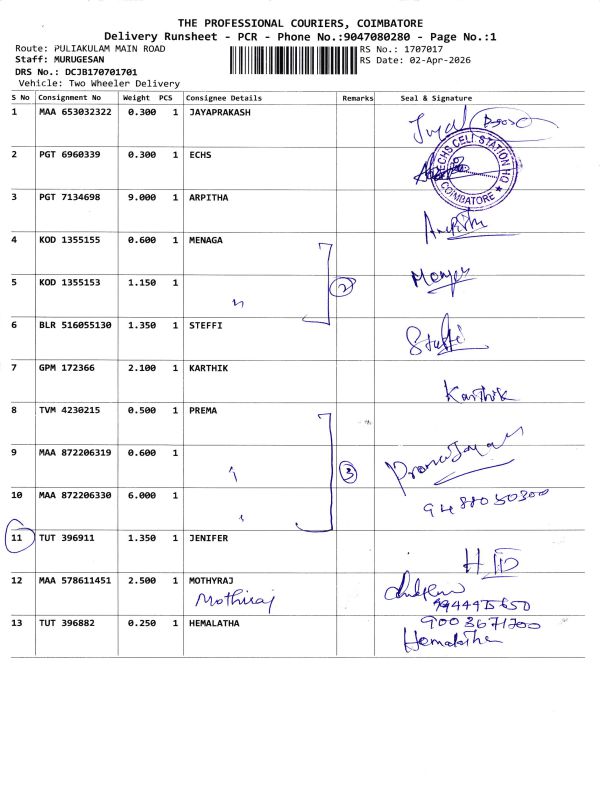 THE PROFESSIONAL COURIERS, COIMBATORE
Delivery Runsheet - PCR - Phone No.:9047080280 - Page No.:1
Route: PULIAKULAM MAIN ROAD
RS No.: 1707017
Staff: MURUGESAN
RS Date: 02-Apr-2026
DRS No.: DCJB170701701
Vehicle: Two Wheeler Delivery
S No Consignment No Weight PCS Consignee Details Remarks Seal & Signature
1 MAA 653032322 0.300 1 JAYAPRAKASH
2 PGT 6960339 0.300 1 ECHS
ECHS CELL STATION HQ
COIMBATORE
3 PGT 7134698 9.000 1 ARPITHA
4 KOD 1355155 0.600 1 MENAGA
5 KOD 1355153 1.150 1 2
6 BLR 516055130 1.350 1 STEFFI Steffi
7 GPM 172366 2.100 1 KARTHIK Karthik
8 TVM 4230215 0.500 1 PREMA
9 MAA 872206319 0.600 1 3
10 MAA 872206330 6.000 1 9488050300
11 TUT 396911 1.350 1 JENIFER
12 MAA 578611451 2.500 1 MOTHYRAJ
Mothiraj
13 TUT 396882 0.250 1 HEMALATHA 9003671700
Hemalatha